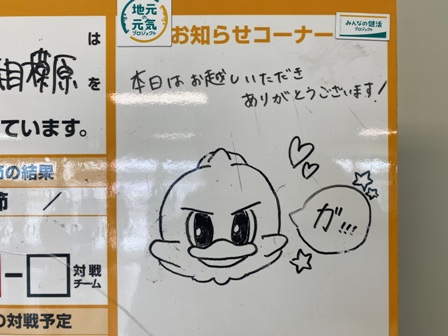 は
相模原を
ています。
節の結果
節 /
対戦
チーム
の対戦予定
地元の
元気
プロジェクト
お知らせコーナー
みんなの健活
プロジェクト
本日はお越しいただき
ありがとうございます!
ガ!!!